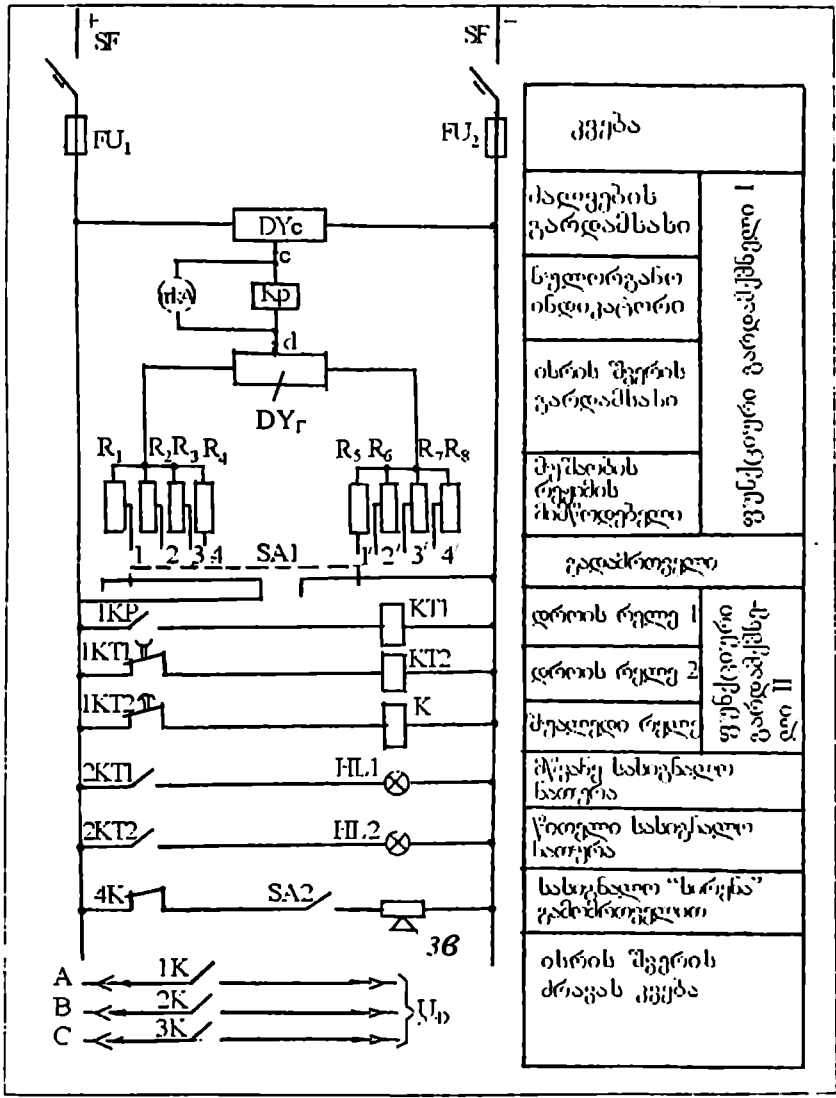 +
SF
SF
−
FU₁
FU₂
DYc
c
mkA
Kp
d
DYг
R₁ R₂ R₃ R₄
R₅ R₆ R₇ R₈
1 2 3 4
SA1
1' 2' 3' 4'
1KP
KT1
1KT1
KT2
1KT2
K
2KT1
HL1
2KT2
HL2
4K
SA2
Зв
A
1K
B
2K
C
3K
კვება
ძალვების
გარდამსასი
ნულორგანო
ინდიკატორი
ისრის შვერის
გარდამსასი
მუშაობის
რეჟიმის
მიმწოდებელი
ფუნქციური გარდამქმნელი I
გადამრთველი
დროის რელე 1
დროის რელე 2
შუალედი რელე
ფუნქციური
გარდამქმნე-
ლი II
მწვანე სასიგნალო
ნათურა
წითელი სასიგნალო
ნათურა
სასიგნალო "სირენა"
გამომრთველით
ისრის შვერის
ძრავას კვება